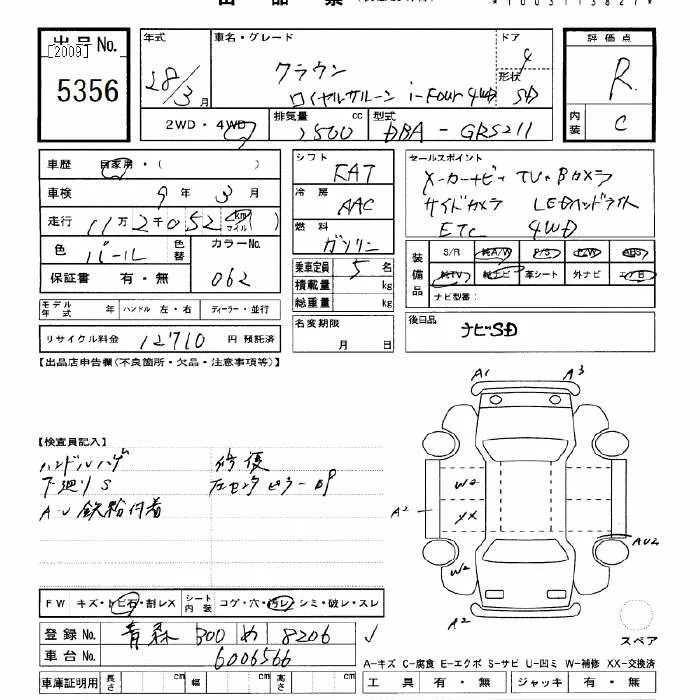 出品No. [2009]
5356
年式 28/3月
車名・グレード クラウン
ロイヤルサルーン i-Four 4WD
ドア 4
形状 SD
評価点 R
内装 C
2WD・4WD
排気量 2500 cc
型式 DBA-GRS211
車歴 自家用・( )
車検 9年3月
走行 11万2千052 km マイル
色 パール 色替 カラーNo. 062
保証書 有・無
シフト FAT
冷房 AAC
燃料 ガソリン
乗車定員 5名
積載量 kg
総重量 kg
名変期限 月 日
セールスポイント
メーカーナビ・TV・Bカメラ
サイドカメラ LEDヘッドライト
ETC 4WD
装備品 S/R 純A/W P/S P/W ABS
純TV 純ナビ 革シート 外ナビ エアB
ナビ型番:
後日品 ナビSD
モデル年式 年 ハンドル 左・右 ディーラー・並行
リサイクル料金 12710 円 預託済
【出品店申告欄(不良箇所・欠品・注意事項等)】
【検査員記入】
ハンドルハゲ 修復
下廻りS 左センターピラーUP
A-U 鉄粉付着
A1 A3
W2
A2 XX
AU2
W2
A2
スペア
FW キズ・トビ石・割レX シート内装 コゲ・穴・汚レ・シミ・破レ・スレ
登録No. 青森 300 め 8206
車台No. 6006566
A-キズ C-腐食 E-エクボ S-サビ U-凹ミ W-補修 XX-交換済
車庫証明用 長さ cm 幅 cm 高さ cm
工具 有・無 ジャッキ 有・無